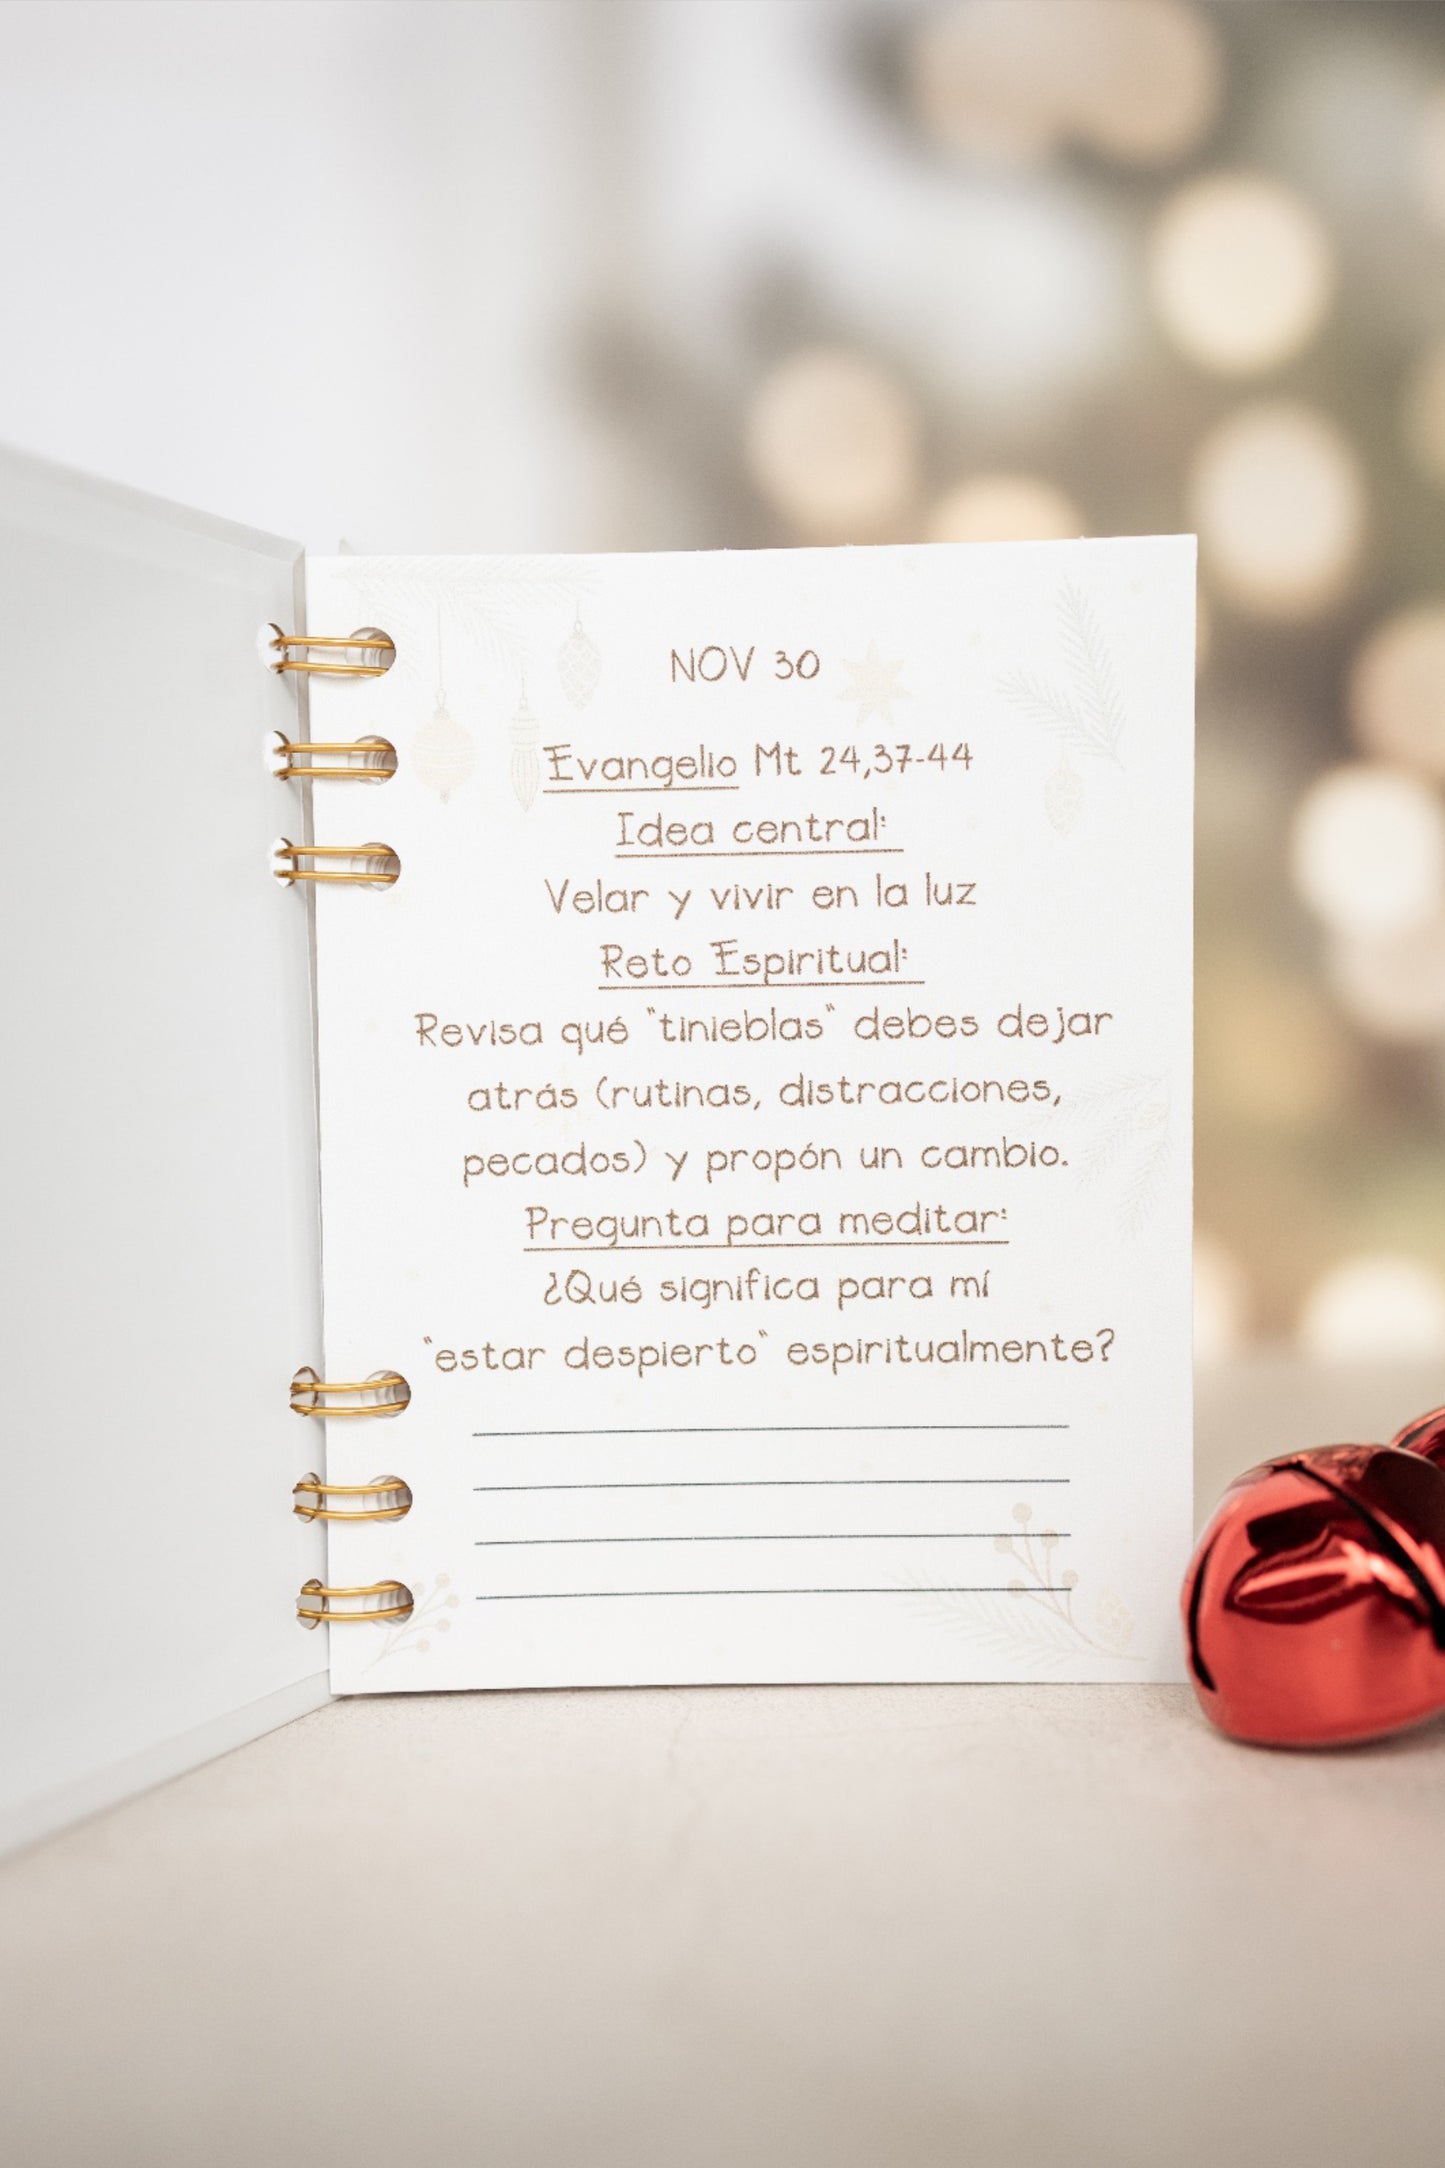 NOV 30
Evangelio Mt 24,37-44
Idea central:
Velar y vivir en la luz
Reto Espiritual:
Revisa qué "tinieblas" debes dejar
atrás (rutinas, distracciones,
pecados) y propón un cambio.
Pregunta para meditar:
¿Qué significa para mí
"estar despierto" espiritualmente?